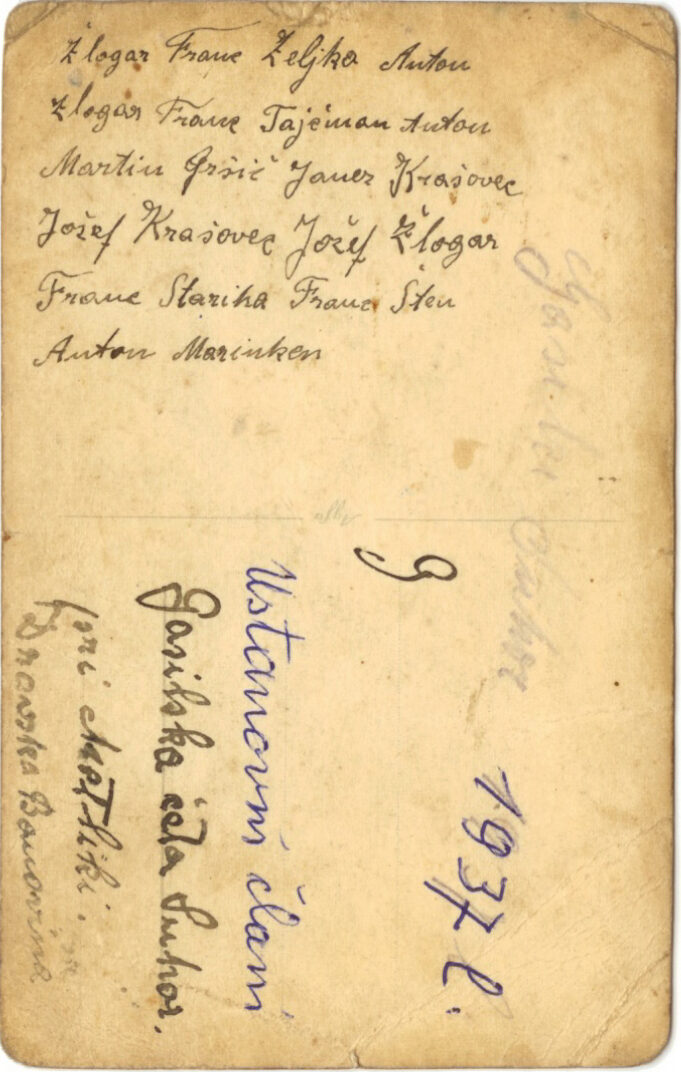 Žlogar Franc Željko Anton
Žlogar Franc Tajčman Anton
Martin Gršič Janez Krašovec
Jožef Krašovec Jožef Žlogar
Franc Stariha Franc Šten
Anton Marinken
G
1937 l.
Ustanovni člani
Gasilska četa Suhor.
pri Metliki.
Dravska Banovina